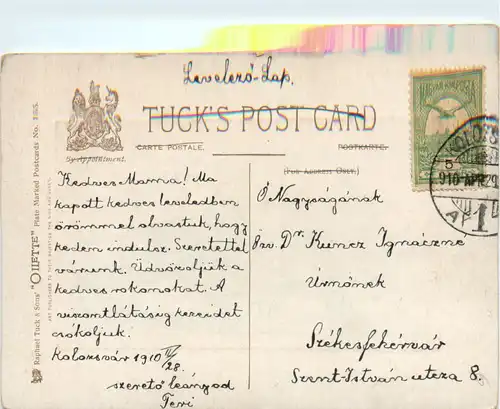 Levelező-Lap.
TUCK'S POST CARD
CARTE POSTALE.
POSTKARTE.
By Appointment.
(FOR ADDRESS ONLY.)
MAGYAR KIR. POSTA
910 APR 29
Raphael Tuck & Sons' "OILETTE" Plate Marked Postcards No.
Kedves Mama! Ma
kapott kedves leveledben
örömmel olvastuk, hogy
kedden indulsz. Szeretettel
várunk. Üdvözöljük a
kedves rokonokat. A
viszontlátásig kezeidet
csókoljuk.
Kolozsvár 1910 IV/28.
szerető leányod
Teri
Ő Nagyságának
özv. Dr. Kuncz Ignáczné
Úrnőnek
Székesfehérvár
Szent-István utcza 8.